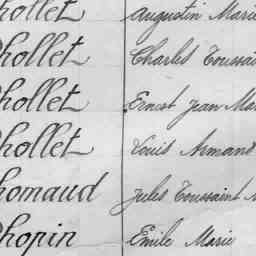 hollet Augustin Marie
hollet Charles Toussai
hollet Ernest Jean Ma
hollet Louis Armand
homaud Jules Toussaint
hopin Emile Marie